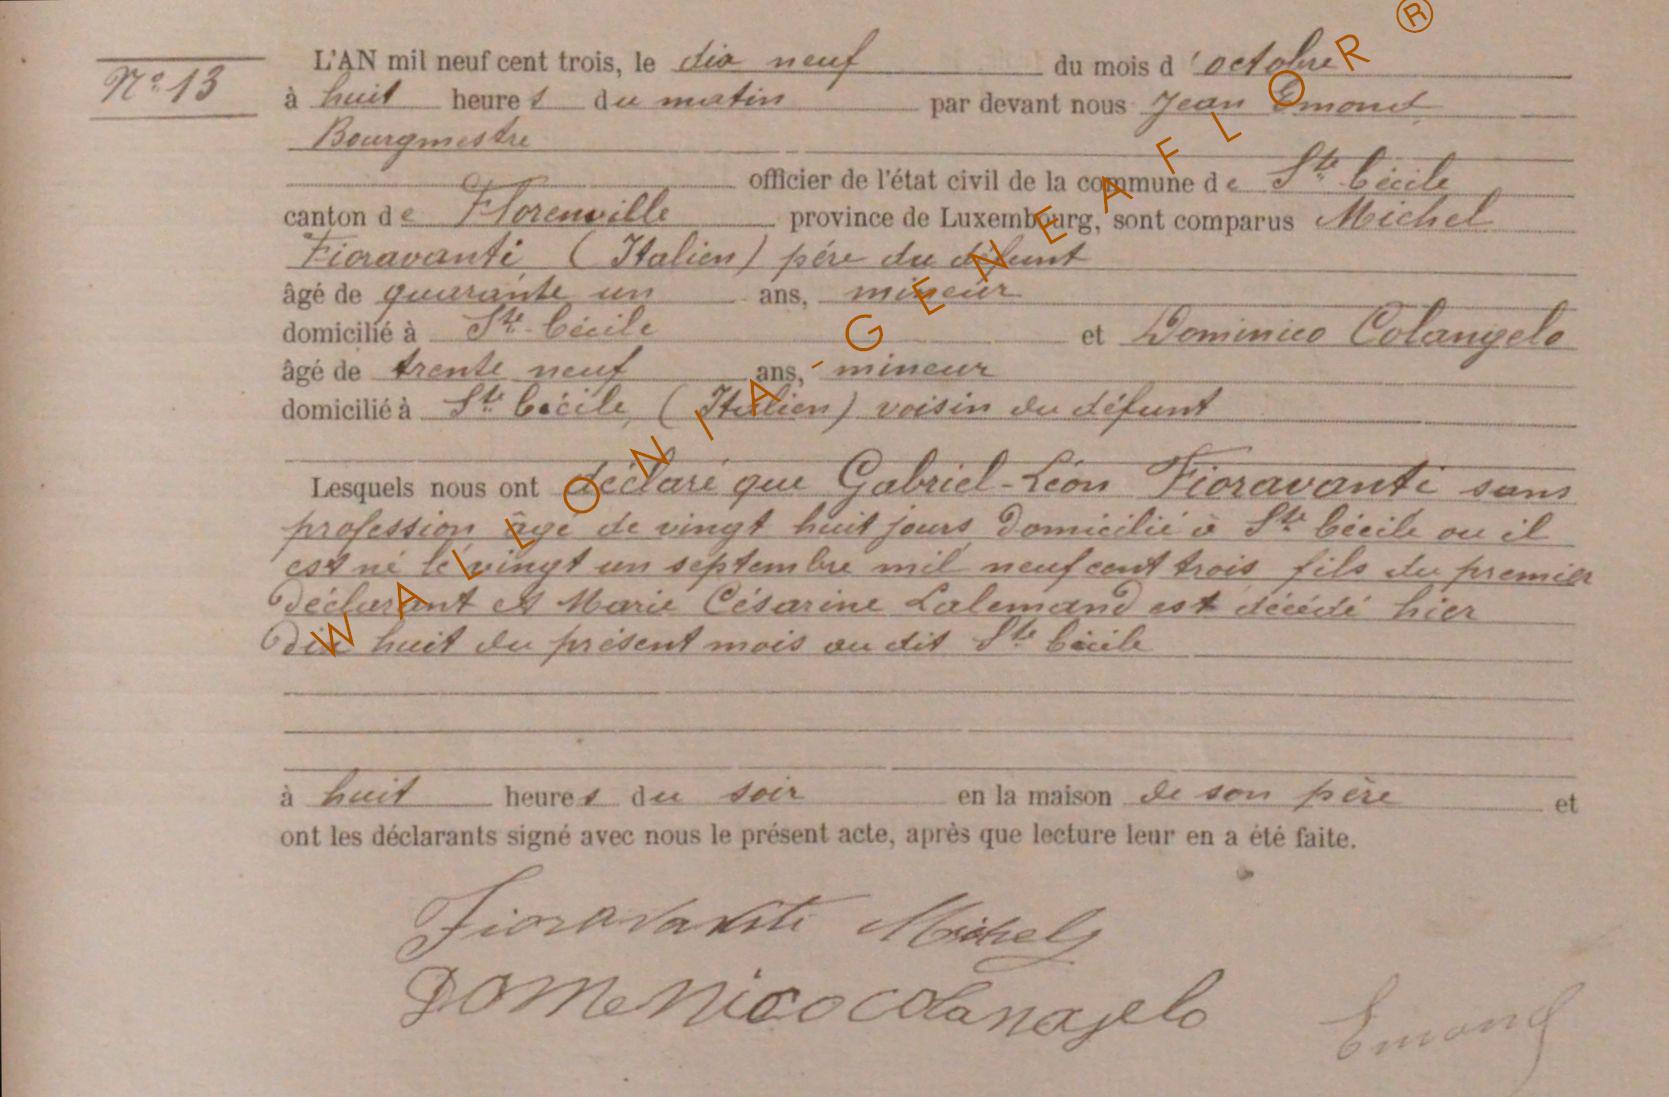 N° 13
L'AN mil neuf cent trois, le dix neuf du mois d'octobre
à huit heures du matin par devant nous Jean Emond
Bourgmestre
officier de l'état civil de la commune de Ste Cécile
canton de Florenville province de Luxembourg, sont comparus Michel
Fioravanti (Italien) père du défunt
âgé de quarante un ans, mineur
domicilié à Ste Cécile et Dominico Colangelo
âgé de trente neuf ans, mineur
domicilié à Ste Cécile, (Italien) voisin du défunt
Lesquels nous ont déclaré que Gabriel-Léon Fioravanti sans
profession âgé de vingt huit jours domicilié à Ste Cécile ou il
est né le vingt un septembre mil neuf cent trois fils du premier
déclarant et Marie Césarine Lalemand est décédé hier
dix huit du présent mois au dit Ste Cécile
à huit heures du soir en la maison de son père et
ont les déclarants signé avec nous le présent acte, après que lecture leur en a été faite.
Fioravanti Michel
Domenico Colangelo
Emond
WALLONIA-GENEAFLOR ®